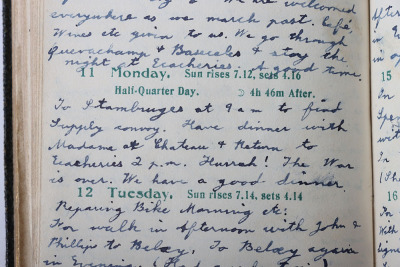 We are welcomed
everywhere as we march past. Café
Wines etc given to us. We go through
Quevachamp & Basecles & stay the
night at Ecacheries. A good time.
11 Monday. Sun rises 7.12, sets 4.16
Half-Quarter Day. ☽ 4h 46m After.
To Stambruges at 9 am to find
Supply convoy. Have dinner with
Madame at Chateau & Return to
Ecacheries 2 p.m. Hurrah! The War
is over. We have a good dinner.
12 Tuesday. Sun rises 7.14, sets 4.14
Repairing Bike Morning etc:
For walk in Afternoon with John &
Phillips to Belœy. To Belœy again
in Evening.
15
16